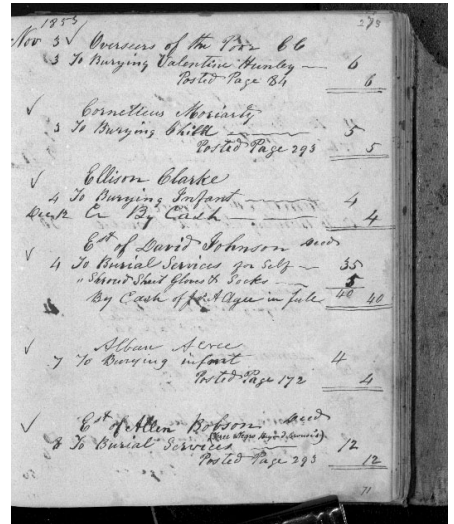 1855 293
Nov 3 √ Overseers of the Poor CC
3 To Burying Valentine Hunley — 6
Posted Page 84 6
√ Cornelieus Moriarty
3 To Burying Child — 5
Posted Page 293 5
√ Ellison Clarke
4 To Burying Infant — 4
Decr 12 Cr By Cash — 4
√ Est of David Johnson decd
4 To Burial Services for Self — 35
" Shroud Sheet Gloves & Socks — 5
By Cash of in full 40 40
√ Alban Acree
7 To Burying infant 4
Posted Page 172 4
√ Est of Allen Robson decd
8 To Burial Services 12
Posted Page 293 12
71